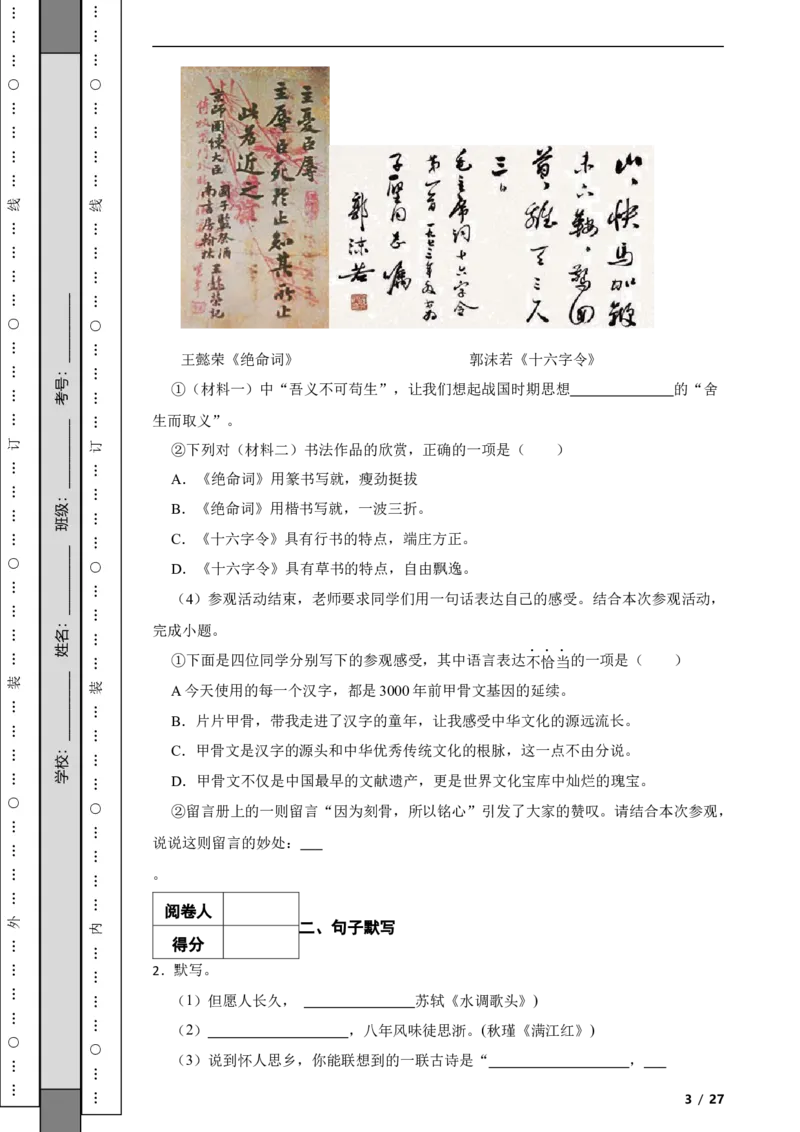 主忧臣辱
主辱臣死於止知其所止
此为近之
京师团练大臣
国子监祭酒
南书房翰林
王懿荣记
山，快马加鞭
未下鞍。惊回
首，离天三尺
三。
毛主席词十六字令
第一首
郭沫若
王懿荣《绝命词》
郭沫若《十六字令》
①（材料一）中“吾义不可苟生”，让我们想起战国时期思想______________的“舍
生而取义”。
②下列对（材料二）书法作品的欣赏，正确的一项是（　　）
A．《绝命词》用篆书写就，瘦劲挺拔
B．《绝命词》用楷书写就，一波三折。
C．《十六字令》具有行书的特点，端庄方正。
D．《十六字令》具有草书的特点，自由飘逸。
（4）参观活动结束，老师要求同学们用一句话表达自己的感受。结合本次参观活动，
完成小题。
①下面是四位同学分别写下的参观感受，其中语言表达不恰当的一项是（　　）
A 今天使用的每一个汉字，都是 3000 年前甲骨文基因的延续。
B．片片甲骨，带我走进了汉字的童年，让我感受中华文化的源远流长。
C．甲骨文是汉字的源头和中华优秀传统文化的根脉，这一点不由分说。
D．甲骨文不仅是中国最早的文献遗产，更是世界文化宝库中灿烂的瑰宝。
②留言册上的一则留言“因为刻骨，所以铭心”引发了大家的赞叹。请结合本次参观，
说说这则留言的妙处：___
。
阅卷人
得分
二、句子默写
2．默写。
（1）但愿人长久， _______________苏轼《水调歌头》)
（2）___________________，八年风味徒思浙。(秋瑾《满江红》)
（3）说到怀人思乡，你能联想到的一联古诗是“___________________，___
3 / 27
外
内
装
装
订
订
线
线
学校：__________ 姓名：__________ 班级：__________ 考号：__________